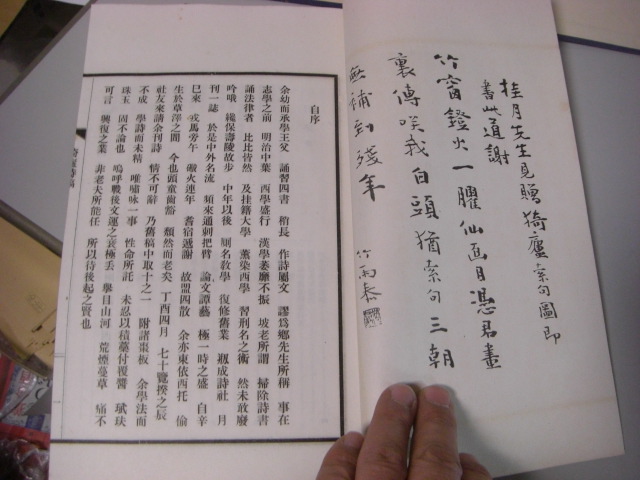 桂月先生見贈猗廬索句圖即
書此道謝
竹窗鐙火一臞仙面目憑君畫
裏傳咲我白頭猶索句三朝
無補到殘年
竹雨泰
自序
余幼而承學王父 誦習四書 稍長 作詩屬文 謬爲鄉先生所稱 事在
志學之前 明治中葉 西學盛行 漢學萎靡不振 坡老所謂 掃除詩書
誦法律者 比比皆然 及挂籍大學 薰染西學 習刑名之術 然未敢廢
吟哦 纔保壽陵故步 中年以後 名敎學 復修舊業 成詩社 月
刊一誌 於是中外名流 頻來通刺把臂 論文譚藝 極一時之盛 自辛
巳來 戎馬旁午 礮火連年 耆宿遞謝 故盟四散 余亦東依西托 偷
生於草澤之間 今也頭童齒豁 頹然而老矣 丁酉四月 七十覽揆之辰
社友來請余刊詩 情不可辭 乃舊稿中取十之一 附諸棗板 余學法而
不成 學詩而未精 唯嘯咏一事 性命所託 未忍以積藁付覆醬 珷玞
珠玉 固不論也 嗚呼戰後文運之衰極矣 擧目山河 荒煙蔓草 痛不
可言 興復之業 非老夫所能任 所以待後起之賢也